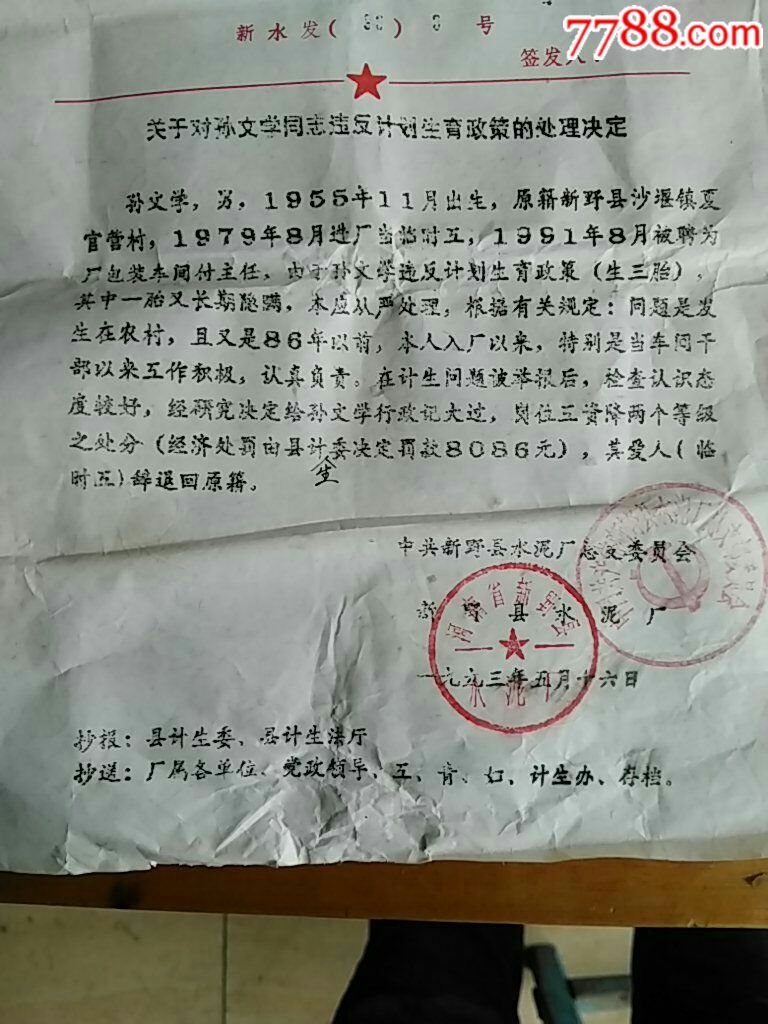 7788.com
新水发( ) 号
签发人:
关于对孙文学同志违反计划生育政策的处理决定
孙文学,男,1955年11月出生,原籍新野县沙堰镇夏
官营村,1979年8月进厂当临时工,1991年8月被聘为
厂包装车间付主任,由于孙文学违反计划生育政策(生三胎),
其中一胎又长期隐瞒,本应从严处理,根据有关规定:问题是发
生在农村,且又是86年以前,本人入厂以来,特别是当车间干
部以来工作积极,认真负责。在计生问题被举报后,检查认识态
度较好,经研究决定给孙文学行政记大过,岗位工资降两个等级
之处分(经济处罚由县计生委决定罚款8086元),其爱人(临
时工)辞退回原籍。
中共新野县水泥厂总支委员会
新野县水泥厂
一九九三年五月十六日
河南省新野县
水泥厂
抄报:县计生委、县计生法厅
抄送:厂属各单位、党政领导、工、青、妇、计生办、存档。